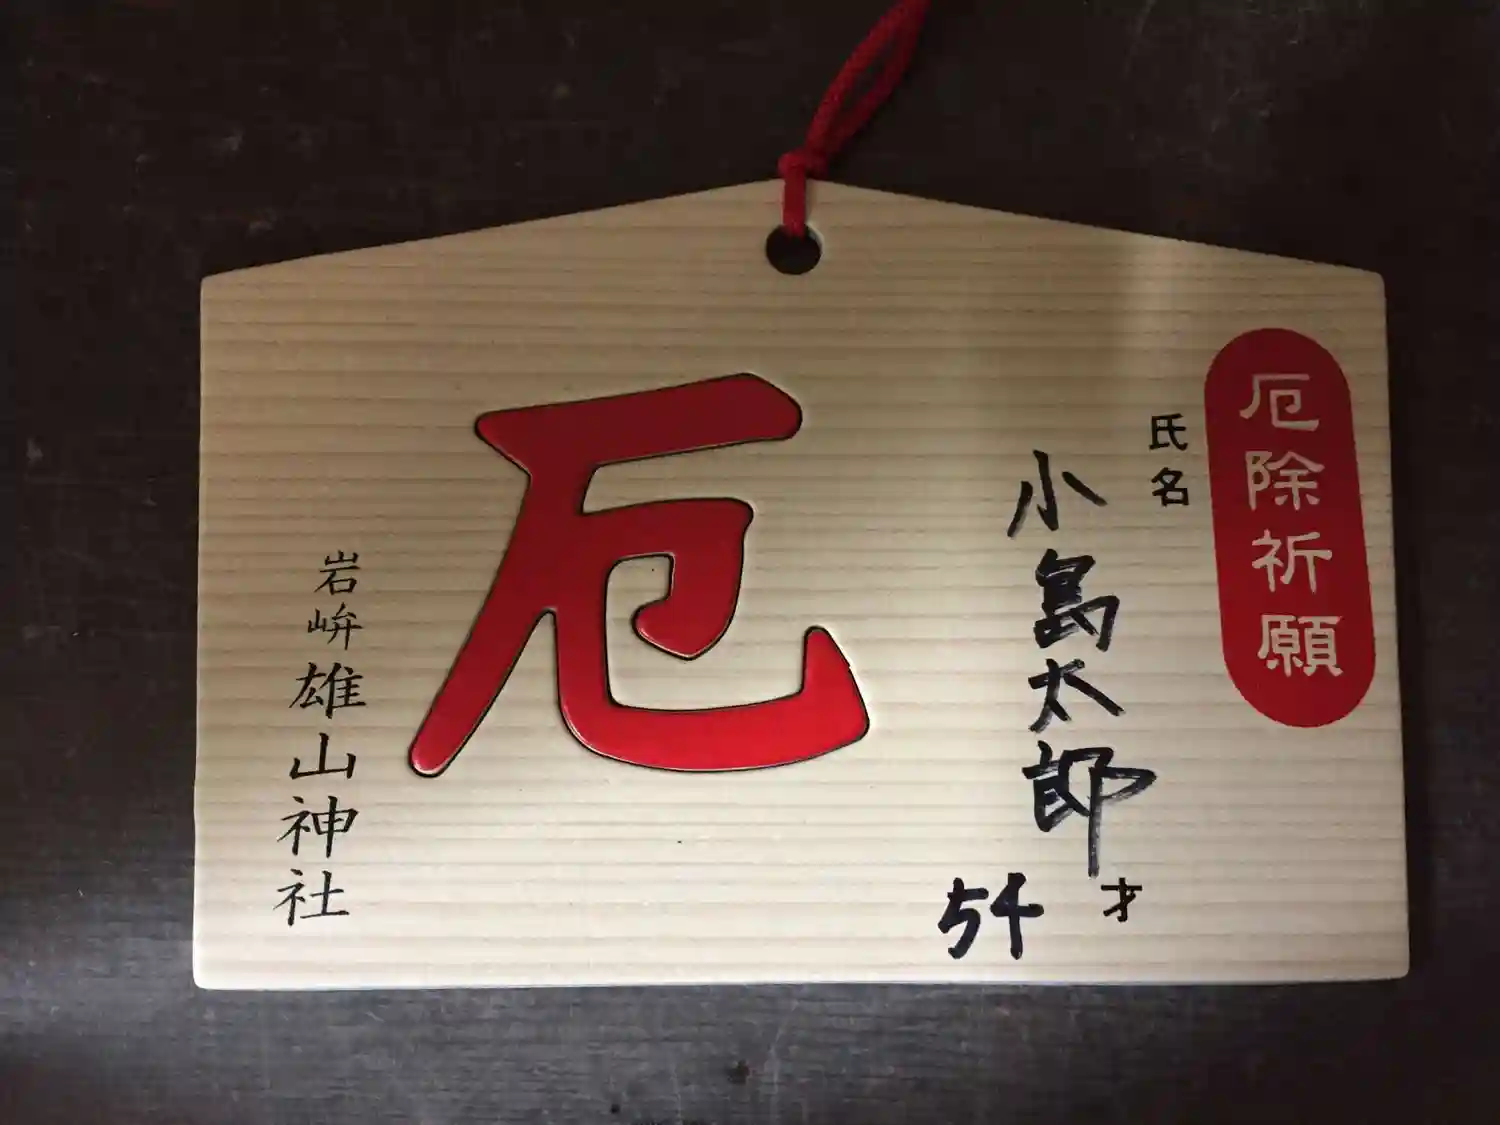 厄除祈願
氏名
小島太郎
54才
厄
岩峅雄山神社